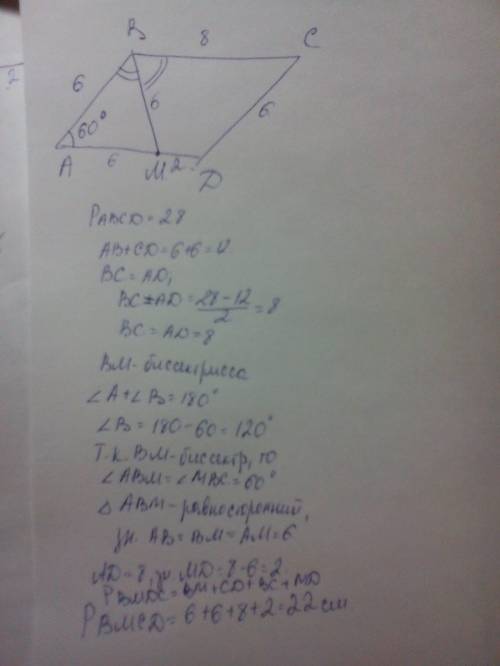 B 8 C
6 6 6
60°
A 6 M 2 D
PABCD = 28
AB+CD=6+6=12
BC = AD,
BC=AD = 28-12/2 = 8
BC = AD = 8
BM - биссектрисса
∠A+∠B=180°
∠B = 180-60=120°
Т.к. BM-биссектр, то
∠ABM=∠MBC=60°
△ABM-равносторонний,
зн. AB=BM=AM=6
AD=8, зн. MD=8-6=2
PBMDC=BM+CD+BC+MD
PBMCD= 6+6+8+2=22 см